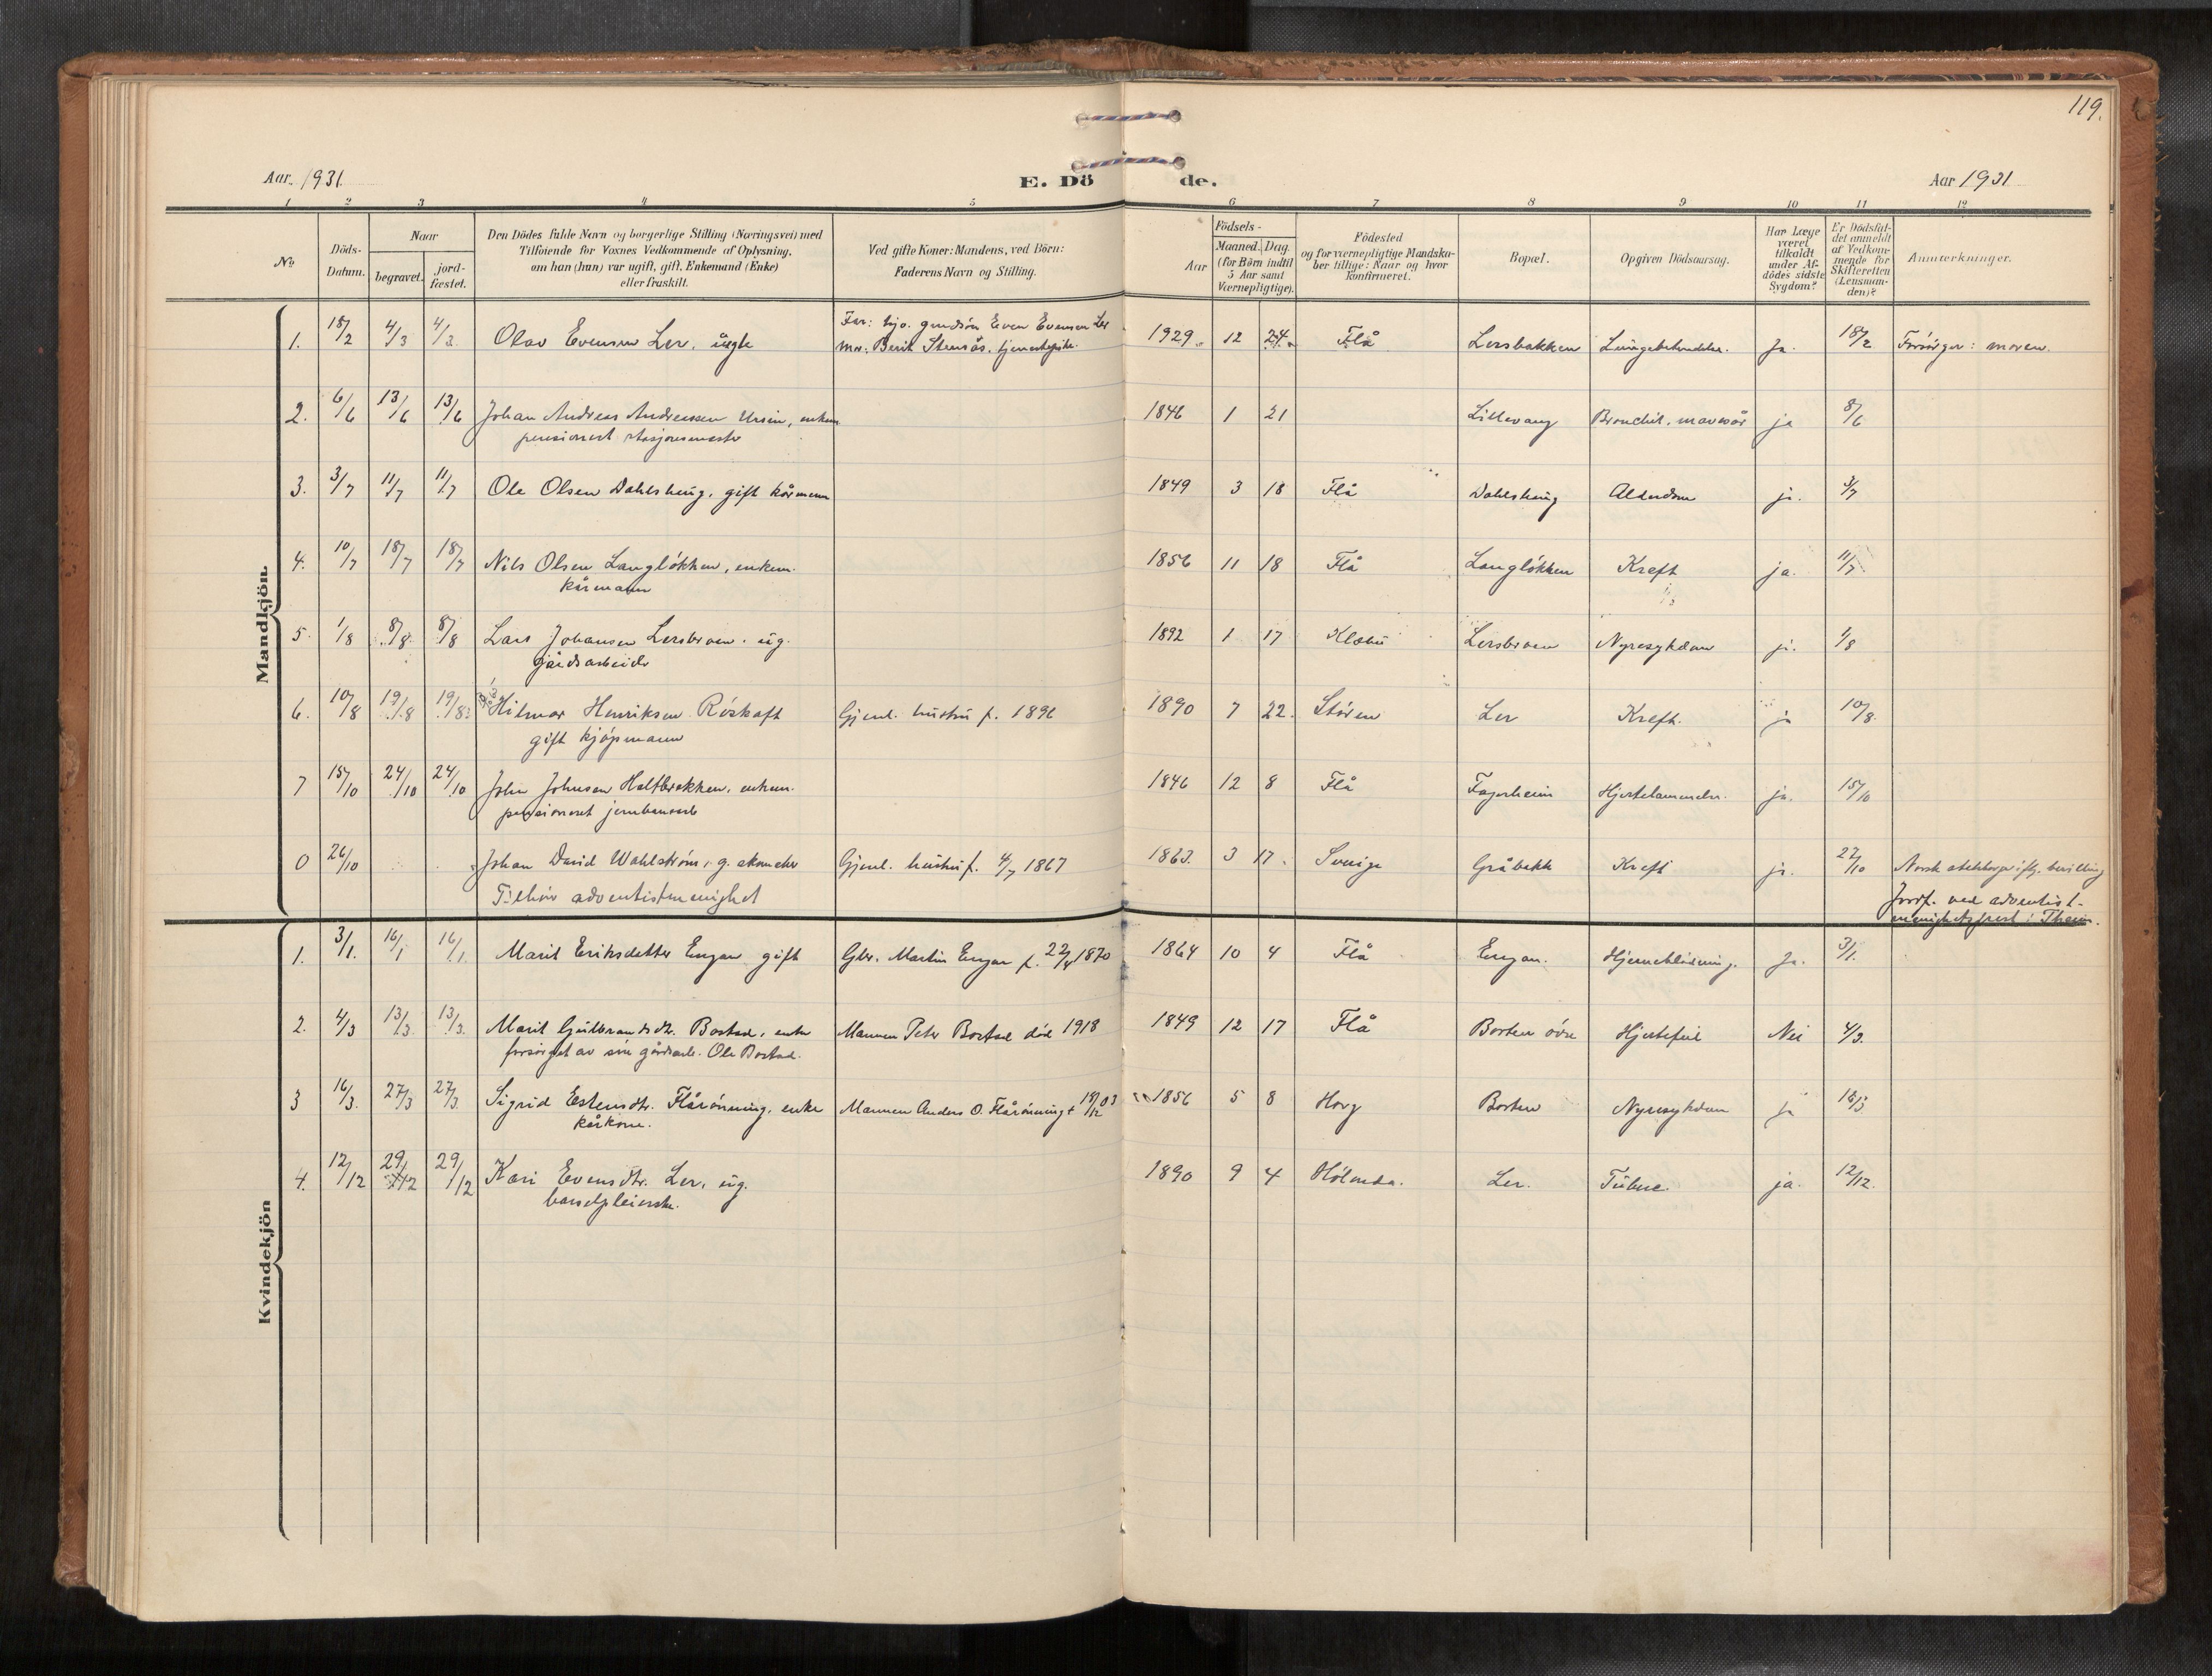 119.
Aar 1931.
E. Dö
de.
Aar 1931
1 2 3 4 5 6 7 8 9 10 11 12
No
Döds-
Datum.
Naar
begravet.
jord-
fæstet.
Den Dödes fulde Navn og borgerlige Stilling (Næringsvei) med
Tilföiende for Voxnes Vedkommende af Oplysning,
om han (hun) var ugift, gift, Enkemand (Enke)
eller fraskilt.
Ved gifte Koner: Mandens, ved Börn:
Faderens Navn og Stilling.
Aar
Födsels-
Maaned. Dag.
(for Börn indtil
5 Aar samt
Værnepligtige).
Födested
og for værnepligtige Mandska-
ber tillige: Naar og hvor
konfirmeret.
Bopæl.
Opgiven Dödsaarsag.
Har Læge
været
tilkaldt
under Af-
dödes sidste
Sygdom?
Er Dödsfal-
det anmeldt
af Vedkom-
mende for
Skifteretten
(Lensman-
den)?
Anmærkninger.
Mandkjön.
Far: Even Evensen Ler
1. 18/2 4/3 4/3. Olav Evensen Ler, mor: Berit Stensås. 1929. 12 24. Flå Lersbakken Ja. 18/2 Forsörger: moren.
2. 6/6 13/6 13/6 Johan Andreas Andreassen Ursin, enkem. 1846 1 21 Lillevang Bronchit, mavesår ja 8/6
pensionert stasjonsmester
3. 3/7 11/7 11/7 Ole Olsen Dahlshaug, gift kårmann 1849 3 18 Flå Dahlshaug Alderdom ja. 3/7
4. 10/7 18/7 18/7 Nils Olsen Langlökken, enkem. 1856 11 18 Flå Langlökken Kreft ja. 11/7
kårmann
5. 1/8 8/8 8/8 Lars Johansen Lersbroen. ug. 1892 1 17 Klæbu Lersbroen Nyresykdom ja. 1/8
gårdsarbeider
6. 10/8 19/8 19/8 Hilmar Henriksen Röskaft Gjenl. hustru f. 1896 1890 7 22. Stören Ler Kreft. ja 10/8.
gift kjöpmann
7 15/10 24/10 24/10 John Johnsen Haltbrekken, enkem. 1846 12 8 Flå Fagerheim ja. 15/10
pensioneret jernbanearb
0 26/10 Johan David Wahlström, g. Gjenl. hustru f. 4/7 1867 1863. 3 17. Sverige Gråbekk Kreft ja. 27/10 Norsk statsborger iflg. bevilling
Tilhör adventistmenighet
Jordf. ved adventist-
menighetsprest i Thjem.
Kvindekjön
1. 3/1. 16/1 16/1. Marit Eriksdatter Engan gift Gbr. Martin Engan f. 22/4 1870 1864 10 4 Flå Engan. Hjerneblödning. Ja. 3/1.
2. 4/3 13/3. 13/3. Marit Gulbrandsdtr. Bortne, enke Mannen Peter död 1918 1849 12 17 Flå Borten övre Hjertefeil Nei 4/3.
forsörget av sön gårdsarb. Ole
3 16/3. 27/3 27/3. Sigrid Estensdtr. Flårönning, enke Mannen Anders O. Flårönning + 18/12 03 1856 5 8 Horg Borten Nyresykdom ja 18/3
kårkone.
4. 12/12 29/12 29/12 Kari Evensdtr. Ler, ug. 1890 9 4 Hölonda. Ler. Tuberc. ja. 12/12.
barselpleierske.